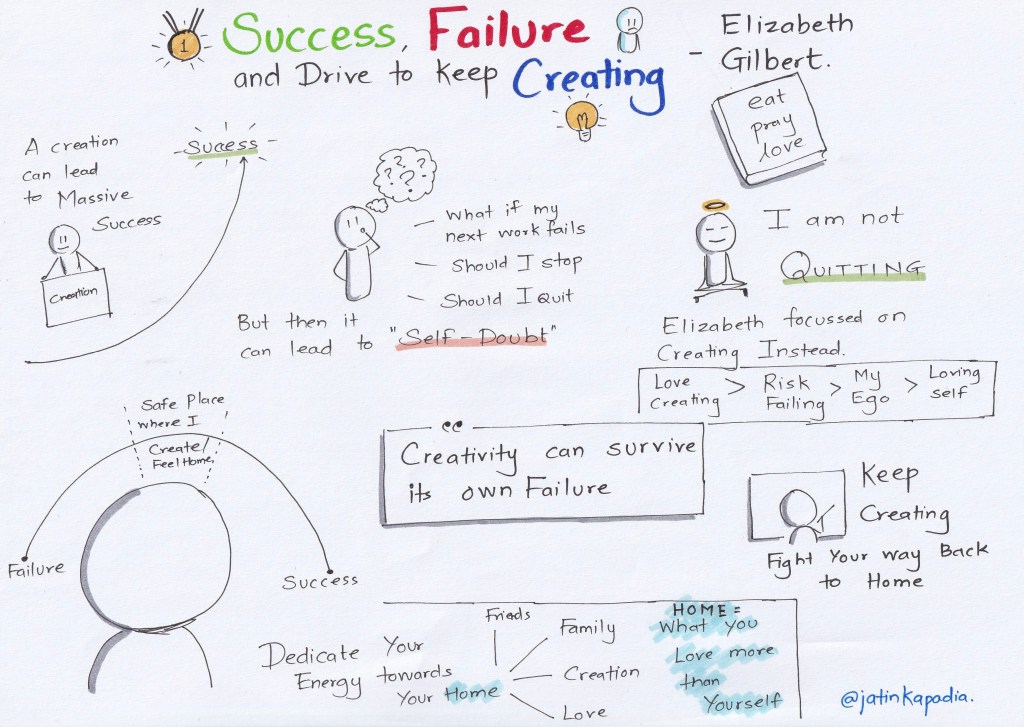 1
Success, Failure
and Drive to Keep Creating
- Elizabeth
Gilbert.
eat
pray
love
A creation
can lead
to Massive
Success
Success
Creation
? ? ?
? ?
What if my
next work fails
- Should I stop
- Should I Quit
But then it
can lead to "Self-Doubt"
I am not
QUITTING
Elizabeth focussed on
Creating Instead.
Love
Creating > Risk
Failing > My
Ego > Loving
self
Safe Place
where I
Create/
Feel Home.
Failure
Success
Creativity can survive
its own Failure
Keep
Creating
Fight Your way Back
to Home
Dedicate Your
Energy towards
Your Home
Frieds
Family
Creation
Love
HOME =
What you
Love more
than
Yourself
@jatinkapadia.